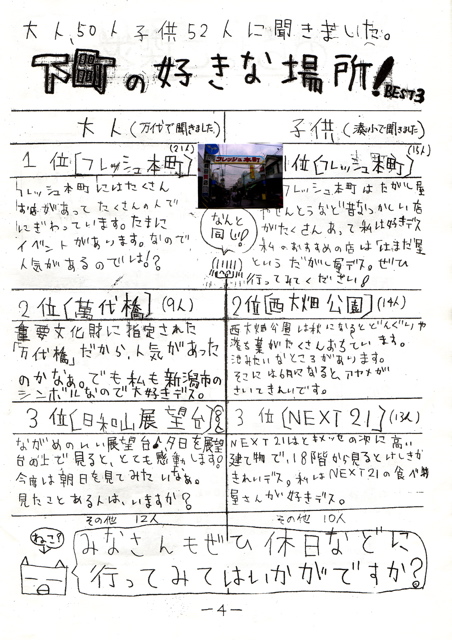 大人50人子供52人に聞きました。
下町の好きな場所!BEST3
大人(万代で聞きました)
子供(湊小で聞きました)
1位[フレッシュ本町](21人)
フレッシュ本町にはたくさん
お店があってたくさんの人で
にぎわっています。たまに
イベントがあります。なので
人気があるのでは!?
フレッシュ本町
なんと
同じ!!
1位[フレッシュ本町](15人)
フレッシュ本町はだがし屋
やせんとうなど昔なつかしい店
がたくさんあって私は好きデス
私のおすすめの店は
というだがし屋デス。ぜひ
行ってみてください!
2位[萬代橋](9人)
重要文化財に指定された
「万代橋」だから、人気があった
のかなぁ。でも、私も新潟市の
シンボルなので大好きデス。
2位[西大畑公園](14人)
西大畑公園は秋になるとどんぐりや
落ち葉がたくさんおちています。
沈みたいなところがあります。
そこには6月になると アヤメが
さいてきれいです。
3位[日和山展望台]
ながめのいい展望台♪夕日を展望
台の上で見ると、とても感動します。
今度は朝日を見てみたいなぁ。
見たことある人は、いますか?
3位[NEXT21](13人)
NEXT21はときメッセの次に高い
建て物で、18階から見るとけしきが
きれいデス。私はNEXT21の食べ物
屋さんが好きデス。
その他 12人
その他 10人
ねっ?
みなさんもぜひ休日などに
行ってみてはいかがですか?
-4-